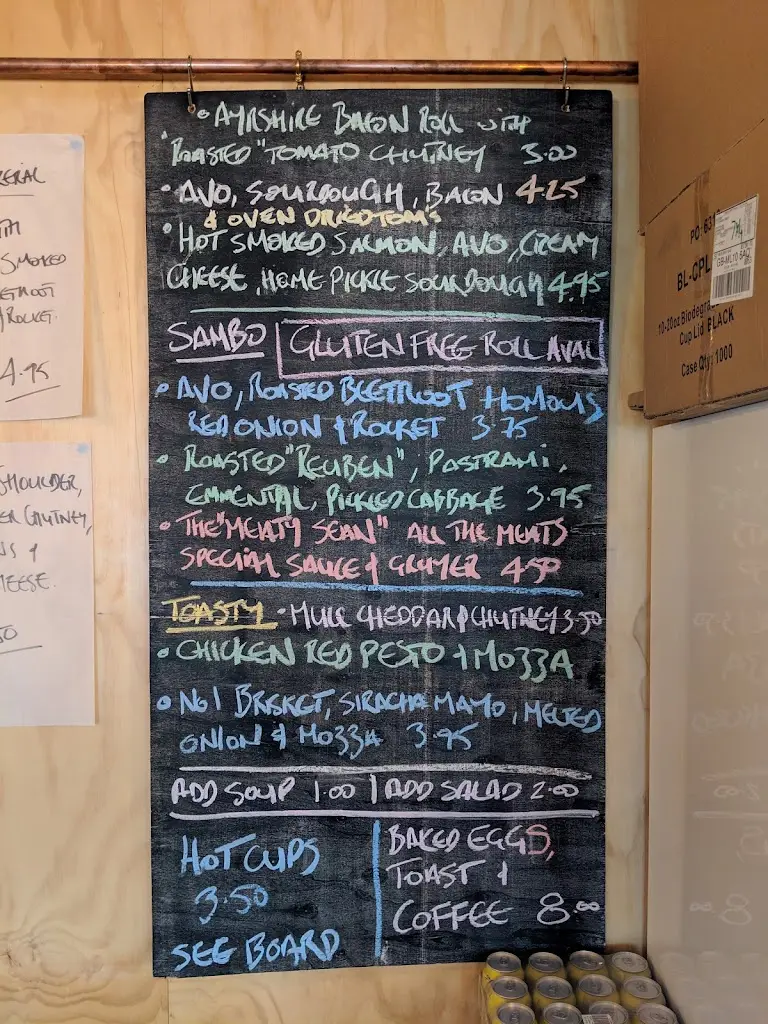 • AYRSHIRE BACON ROLL with
ROASTED "TOMATO CHUTNEY 3.00
• AVO, SOURDOUGH, BACON 4.25
& OVEN DRIED TOM'S
• HOT SMOKED SALMON, AVO, CREAM
CHEESE, HOME PICKLE SOURDOUGH 4.95
SAMBO GLUTEN FREE ROLL AVAL
• AVO, ROASTED BEETROOT HOMOUS
RED ONION & ROCKET 3.75
• ROASTED "REUBEN", PASTRAMI,
EMMENTAL, PICKLED CABBAGE 3.95
• THE "MEATY SEAN" ALL THE MEATS
SPECIAL SAUCE & GRUYER 4.50
TOASTY • MULL CHEDDAR & CHUTNEY 3.50
• CHICKEN RED PESTO & MOZZA
• No1 BRISKET, SIRACHA MAYO, MELTED
ONION & MOZZA 3.95
ADD SOUP 1.00 | ADD SALAD 2.00
HOT CUPS
3.50
SEE BOARD
BAKED EGGS,
TOAST &
COFFEE 8.00
SMOKED
ROCKET.
4.95
SHOULDER,
CHUTNEY,
&
HEESE.
PO: 631
BL-CPL
10-20oz Biodegra
Cup Lid BLACK
Case Qty: 1000